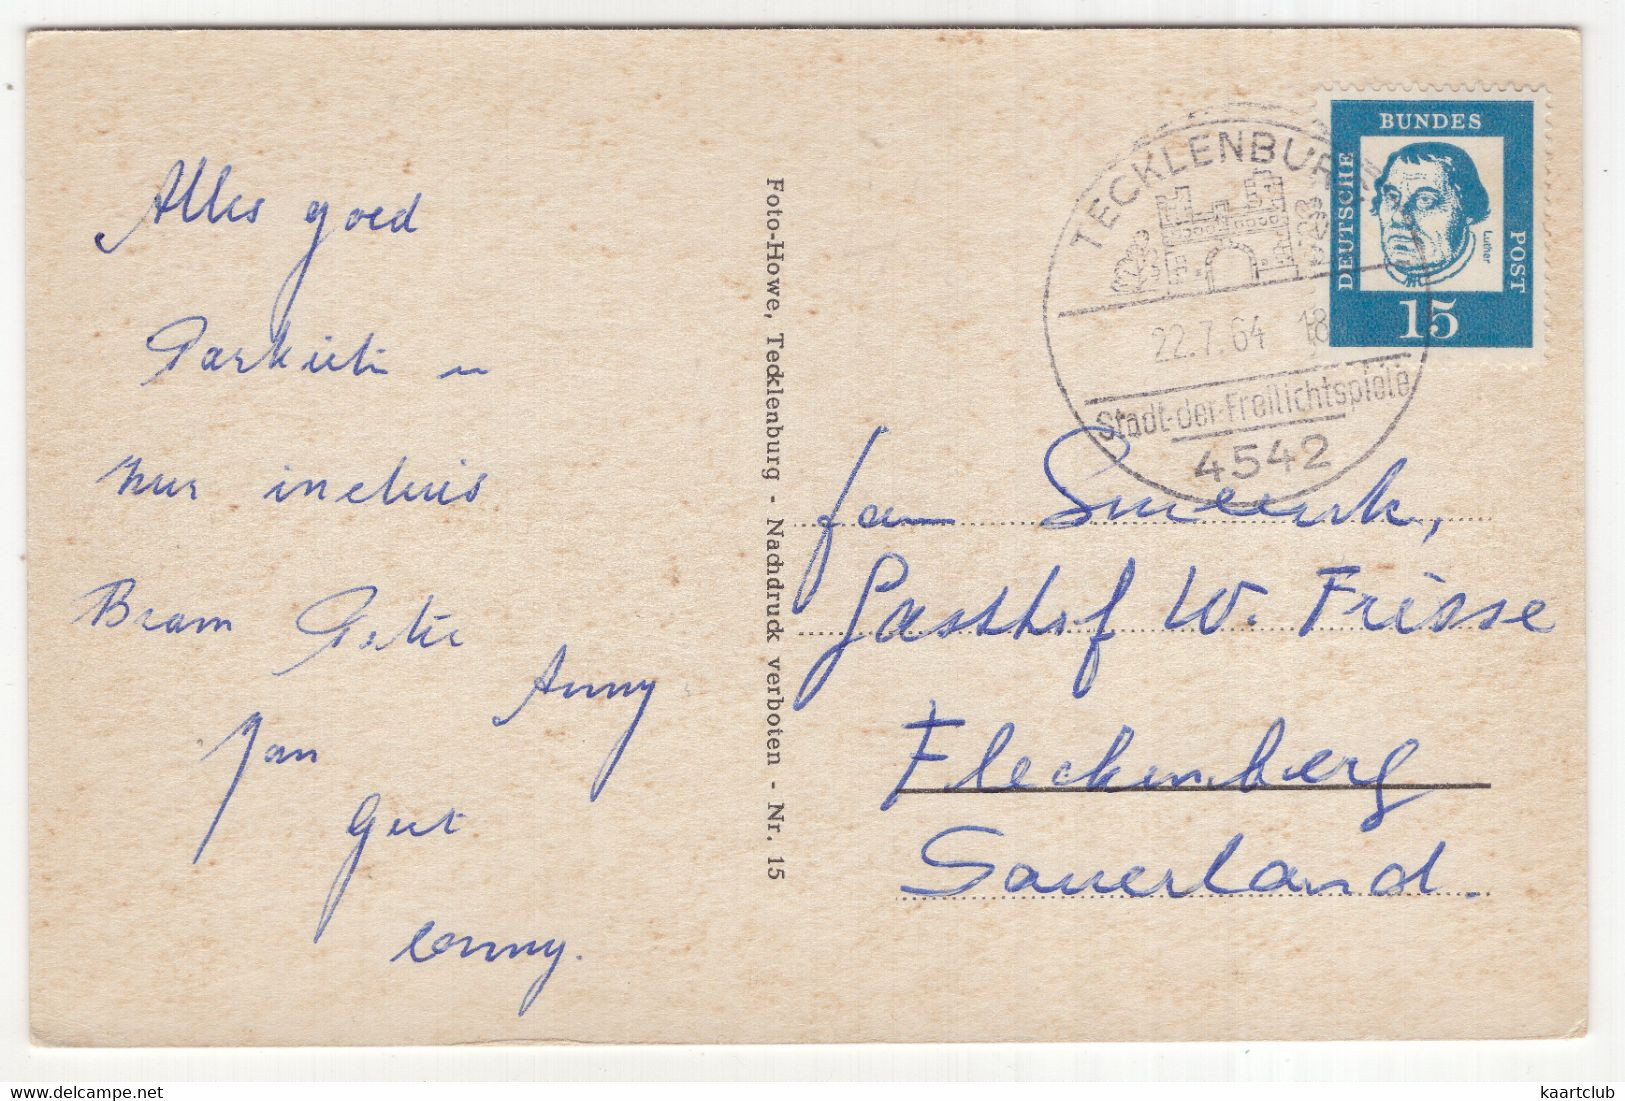 Alles goed
Parkiet
incluis
Bram Peter
Anny
Jan
Conny.
Foto-Howe, Tecklenburg - Nachdruck verboten - Nr. 15
TECKLENBURG
22.7.64 18
Stadt-der-Freilichtspiele
4542
DEUTSCHE BUNDES POST
Luther
15
fam Smeenk,
Gasthof W. Frisse
Fleckenberg
Sauerland.
kaartclub